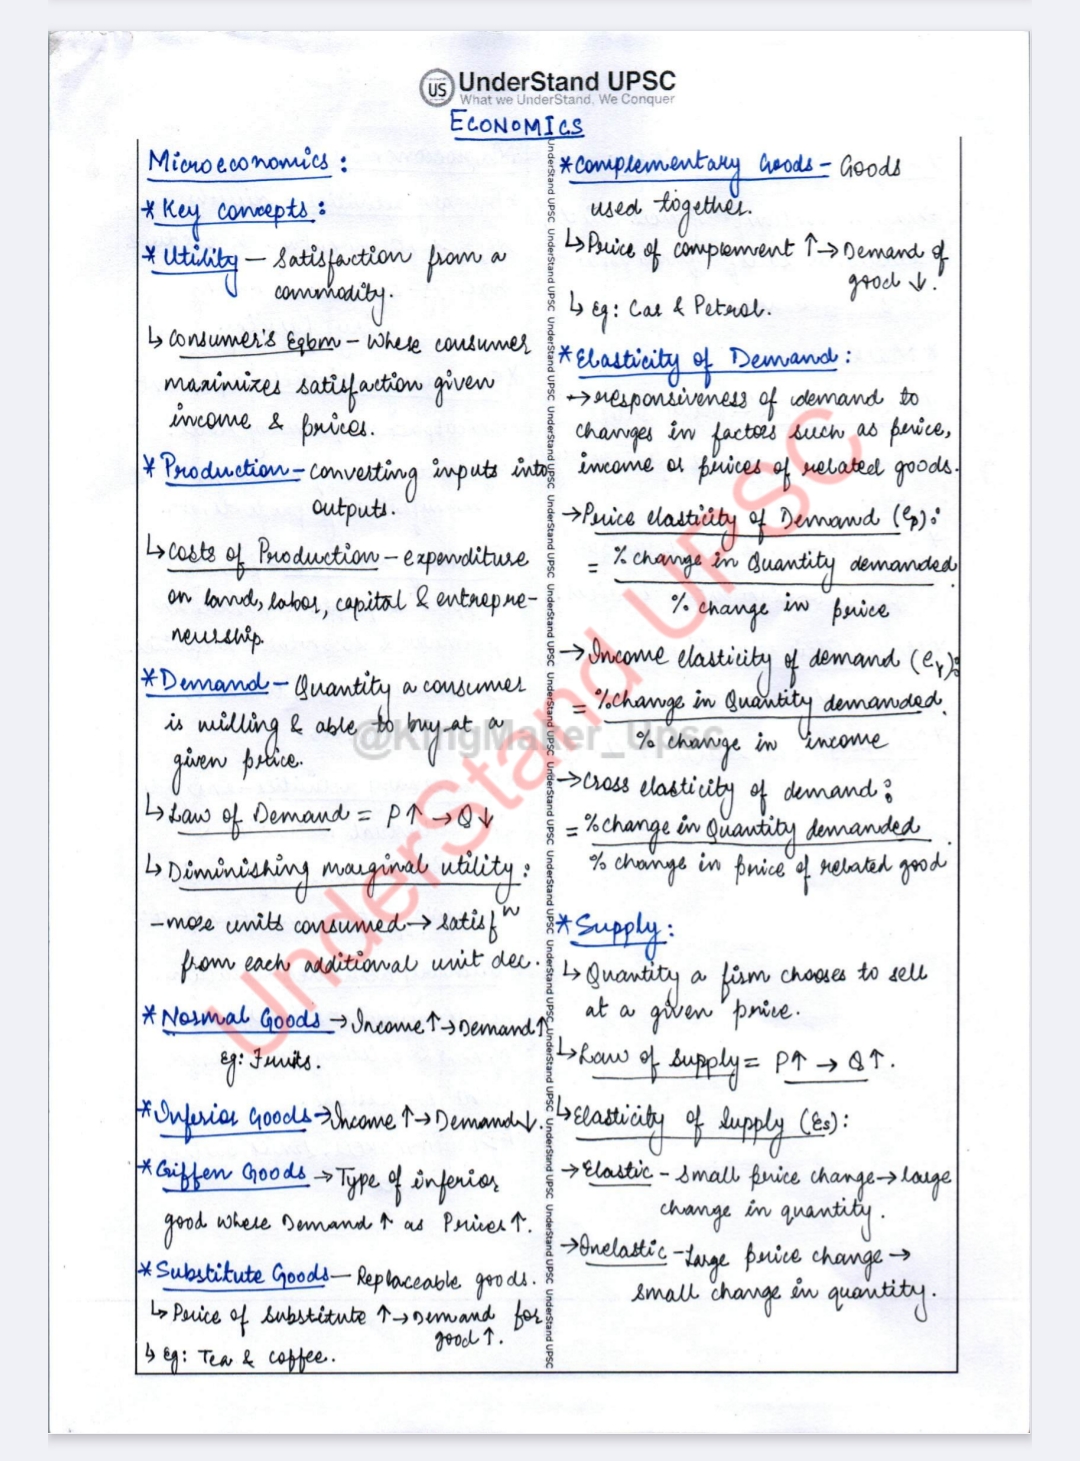 US UnderStand UPSC
What we UnderStand, We Conquer
ECONOMICS
Microeconomics :
* Key concepts :
* Utility – Satisfaction from a
commodity.
↳ Consumer's Eqbm – Where consumer
maximizes satisfaction given
income & prices.
* Production – Converting inputs into
outputs.
↳ Costs of Production – expenditure
on land, labor, capital & entrepre-
neurship.
* Demand – Quantity a consumer
is willing & able to buy at a
given price.
↳ Law of Demand = P↑ → Q↓
↳ Diminishing marginal utility :
– more units consumed → satisfⁿ
from each additional unit dec.
* Normal Goods → Income↑ → Demand↑
Eg: Fruits.
* Inferior Goods → Income ↑ → Demand↓.
* Giffen Goods → Type of inferior
good where Demand ↑ as Prices ↑.
* Substitute Goods – Replaceable goods.
↳ Price of substitute ↑ → Demand for
good ↑.
↳ eg: Tea & coffee.
* Complementary Goods – Goods
used together.
↳ Price of complement ↑ → Demand of
good ↓.
↳ eg: Car & Petrol.
* Elasticity of Demand :
→ responsiveness of demand to
changes in factors such as price,
income or prices of related goods.
→ Price elasticity of Demand (ep):
= % change in Quantity demanded
% change in price
→ Income elasticity of demand (eY):
= % change in Quantity demanded.
% change in income
→ Cross elasticity of demand :
= % change in Quantity demanded.
% change in price of related good
* Supply :
↳ Quantity a firm chooses to sell
at a given price.
↳ Law of supply = P↑ → Q↑.
↳ Elasticity of Supply (Es):
→ Elastic – small price change → large
change in quantity.
→ Inelastic – Large price change →
small change in quantity.
UnderStand UPSC UnderStand UPSC UnderStand UPSC UnderStand UPSC UnderStand UPSC UnderStand UPSC UnderStand UPSC UnderStand UPSC UnderStand UPSC UnderStand UPSC UnderStand UPSC UnderStand UPSC UnderStand UPSC UnderStand UPSC
UnderStand UPSC
@KingMaker_Upsc